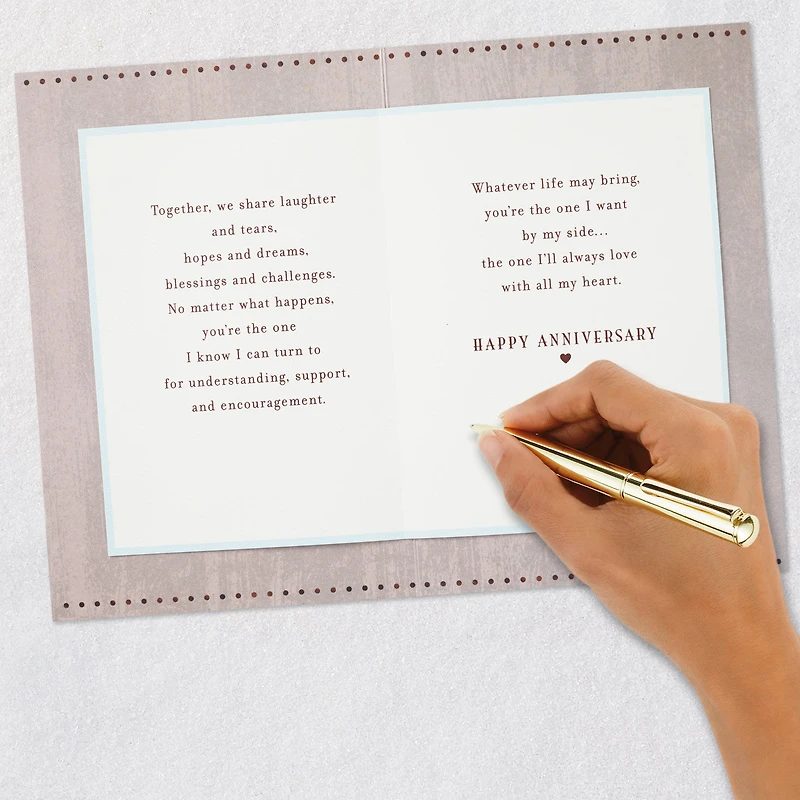 Together, we share laughter
and tears,
hopes and dreams,
blessings and challenges.
No matter what happens,
you're the one
I know I can turn to
for understanding, support,
and encouragement.
Whatever life may bring,
you're the one I want
by my side...
the one I'll always love
with all my heart.
HAPPY ANNIVERSARY